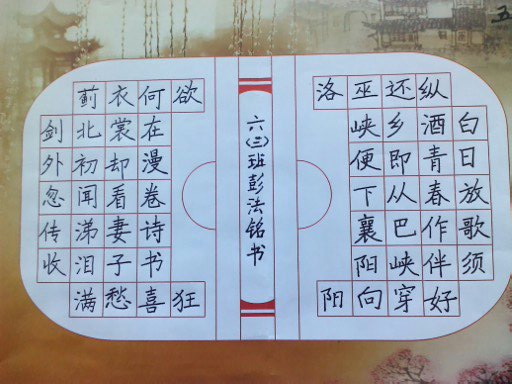 剑外忽传收
蓟北初闻涕泪满
衣裳却看妻子愁
何在漫卷诗书喜
欲狂
白日放歌须
纵酒青春作伴好
还乡即从巴峡穿
巫峡便下襄阳向
洛阳
六(三)班彭法铭书
五